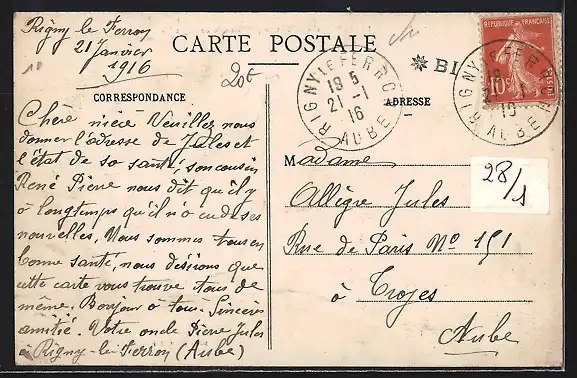 Rigny le Ferron
21 Janvier
1916
20c
CARTE POSTALE
CORRESPONDANCE
ADRESSE
RÉPUBLIQUE FRANÇAISE
10c
POSTES
RIGNY LE FERRON
18 5
21 -1
16
AUBE
RIGNY LE FERRON
18
16
AUBE
28/1
Chère nièce Veuillez nous
donner l'adresse de Jules et
l'état de sa santé, son cousin
René Pierre nous dit qu'il y
à longtemps qu'il n'a eu de ses
nouvelles. Nous sommes tous en
bonne santé, nous désirons que
cette carte vous trouve tous de
même. Bonjour à tous. Sincères
amitié. Votre oncle Pierre Jules
à Rigny-le-Ferron (Aube)
Madame
Allègre Jules
Rue de Paris No 151
à Troyes
Aube